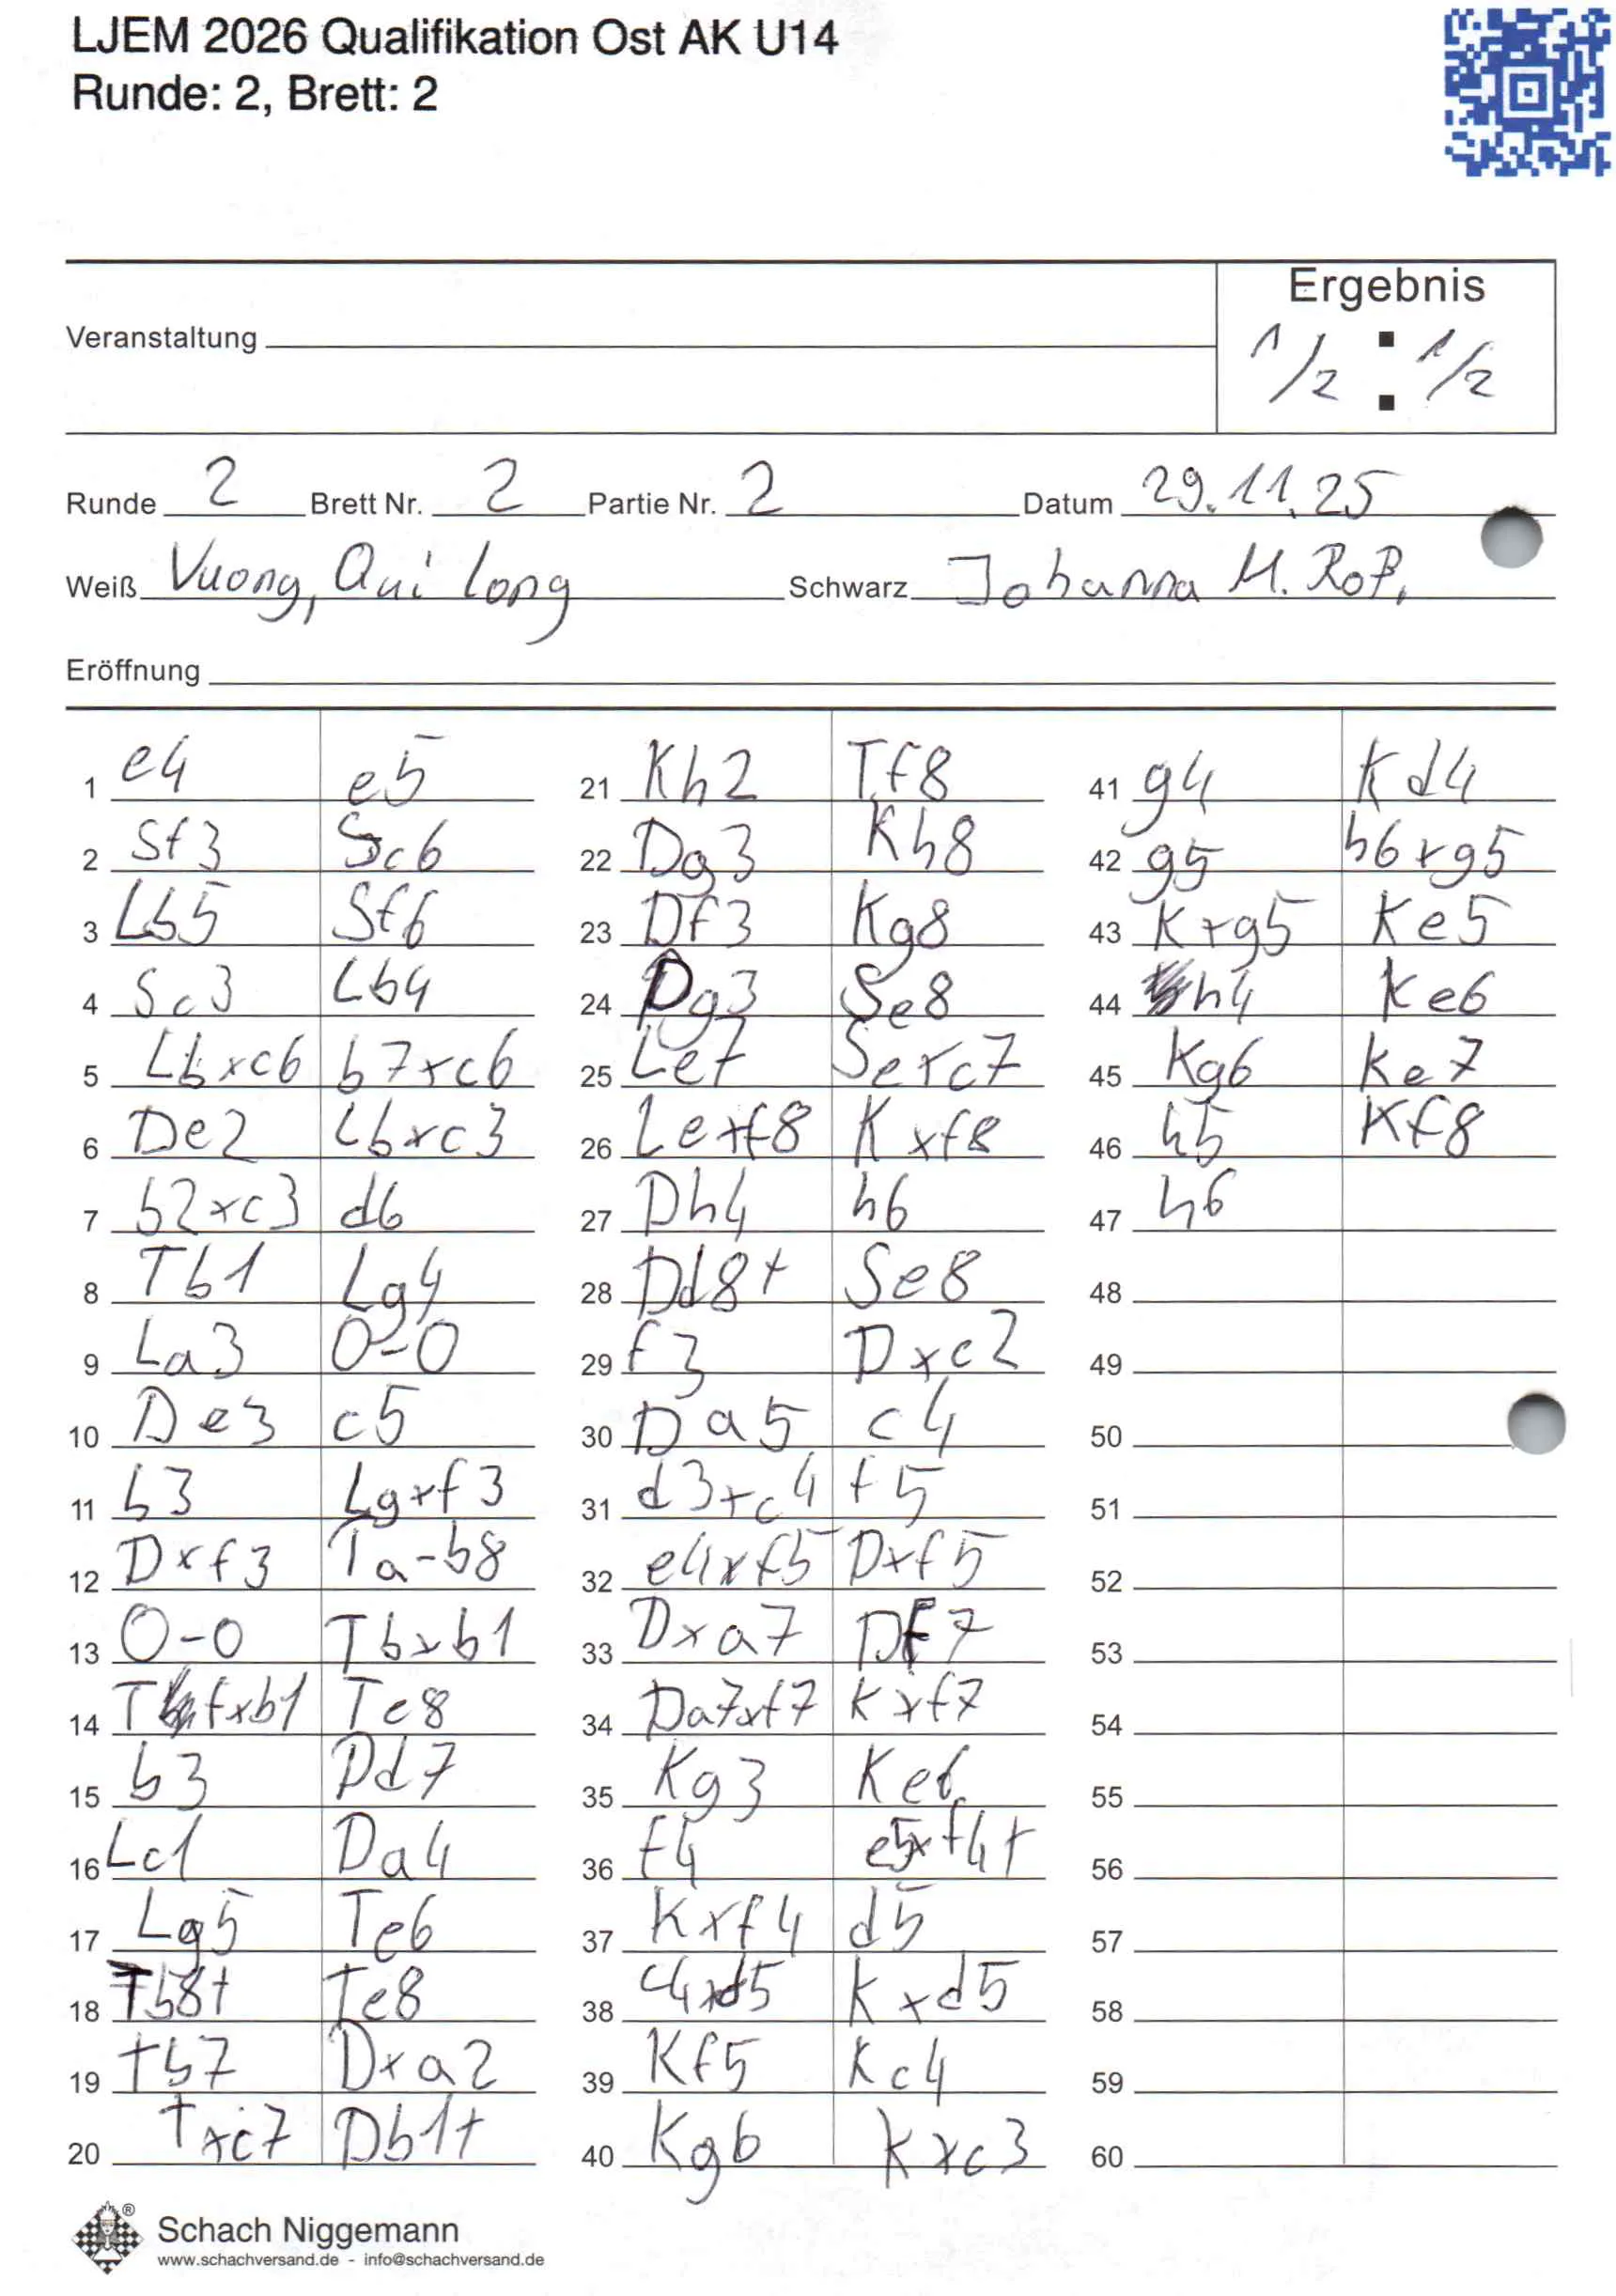 LJEM 2026 Qualifikation Ost AK U14
Runde: 2, Brett: 2
Ergebnis
1/2 : 1/2
Veranstaltung
Runde 2 Brett Nr. 2 Partie Nr. 2 Datum 29.11.25
Weiß Vuong, Qui Long Schwarz Johanna M. Roß.
Eröffnung
1 e4 e5
2 Sf3 Sc6
3 Lb5 Sf6
4 Sc3 Lb4
5 Lbxc6 b7xc6
6 De2 Lbxc3
7 b2xc3 d6
8 Tb1 Lg4
9 La3 0-0
10 De3 c5
11 h3 Lgxf3
12 Dxf3 Ta-b8
13 0-0 Tbxb1
14 Tfxb1 Te8
15 b3 Dd7
16 Lc1 Da4
17 Lg5 Te6
18 Tb8+ Te8
19 Tb7 Dxa2
20 Txc7 Db1+
21 Kh2 Tf8
22 Dg3 Kh8
23 Df3 Kg8
24 Dg3 Se8
25 Le7 Sexc7
26 Lexf8 Kxf8
27 Dh4 h6
28 Dd8+ Se8
29 f3 Dxc2
30 Da5 c4
31 d3xc4 f5
32 e4xf5 Dxf5
33 Dxa7 Df7
34 Da7xf7 Kxf7
35 Kg3 Ke6
36 f4 e5xf4+
37 Kxf4 d5
38 c4xd5 Kxd5
39 Kf5 Kc4
40 Kg6 Kxc3
41 g4 Kd4
42 g5 h6xg5
43 Kxg5 Ke5
44 h4 Ke6
45 Kg6 Ke7
46 h5 Kf8
47 h6
48
49
50
51
52
53
54
55
56
57
58
59
60
®
Schach Niggemann
www.schachversand.de - info@schachversand.de